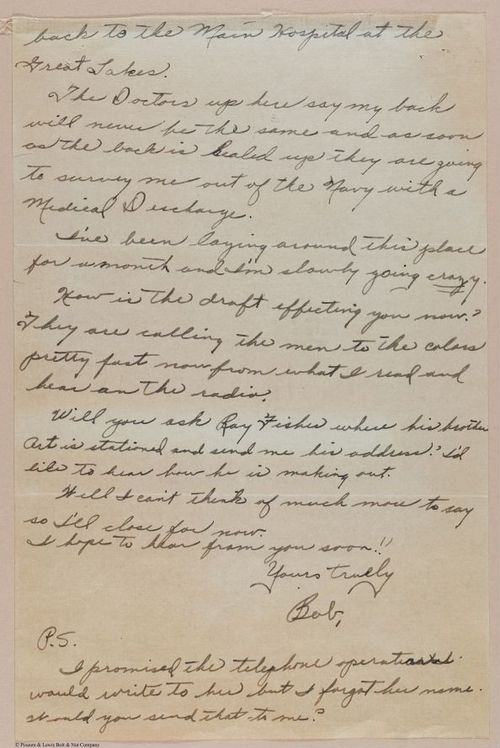 back to the Main Hospital at the
Great Lakes.
The Doctors up here say my back
will never be the same and as soon
as the back is healed up they are going
to survey me out of the Navy with a
Medical Discharge.
I've been laying around this place
for a month and I'm slowly going crazy.
How is the draft effecting you now?
They are calling the men to the colors
pretty fast now from what I read and
hear on the radio.
Will you ask Ray Fisher where his brother
Art is stationed and send me his address? I'd
like to hear how he is making out.
Well I can't think of much more to say
so I'll close for now.
I hope to hear from you soon!!
Yours truely
Bob,
P.S.
I promised the telephone operator I
would write to her but I forgot her name.
Would you send that to me?
© Pioneer & Lewis Bolt & Nut Company